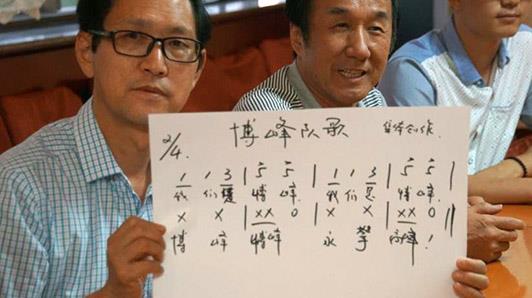 博峰队歌 集体创作.
2/4.
1 1 3 | 5 5 | 1 1 3 | 5 5 |
我们 博峰 我们 博峰
X X | XX 0 | X X | XX 0 ||
博 峰 博峰 永 攀 高峰!